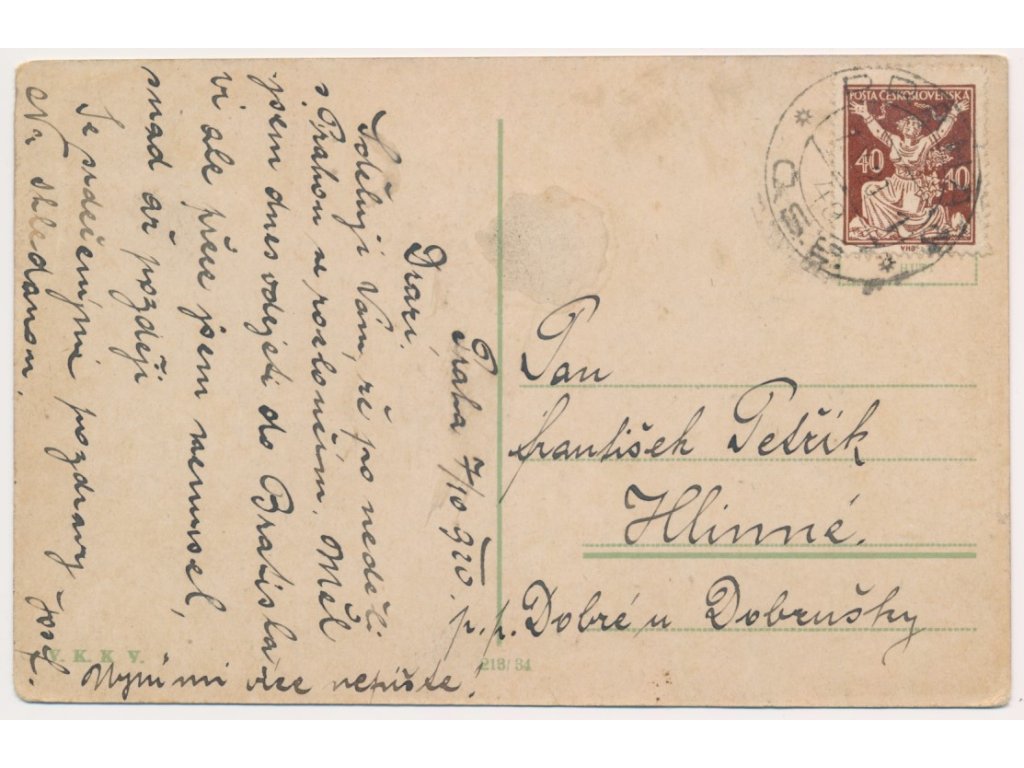 Praha 7/10 920.
Drazí.
Sděluji Vám, že po neděli
s Prahou se rosloučím. Měl
jsem dnes odejeti do Bratisla-
vi ale přece jsem nemusel,
snad až později
Se srdečnými pozdravy Josef.
Na shledanou,
Nyní mi více nepište!
POŠTA ČESKOSLOVENSKÁ
40 40
Pan
František Petřík
Hlinné.
p.p. Dobré u Dobrušky
V. K. K. V.
213/34